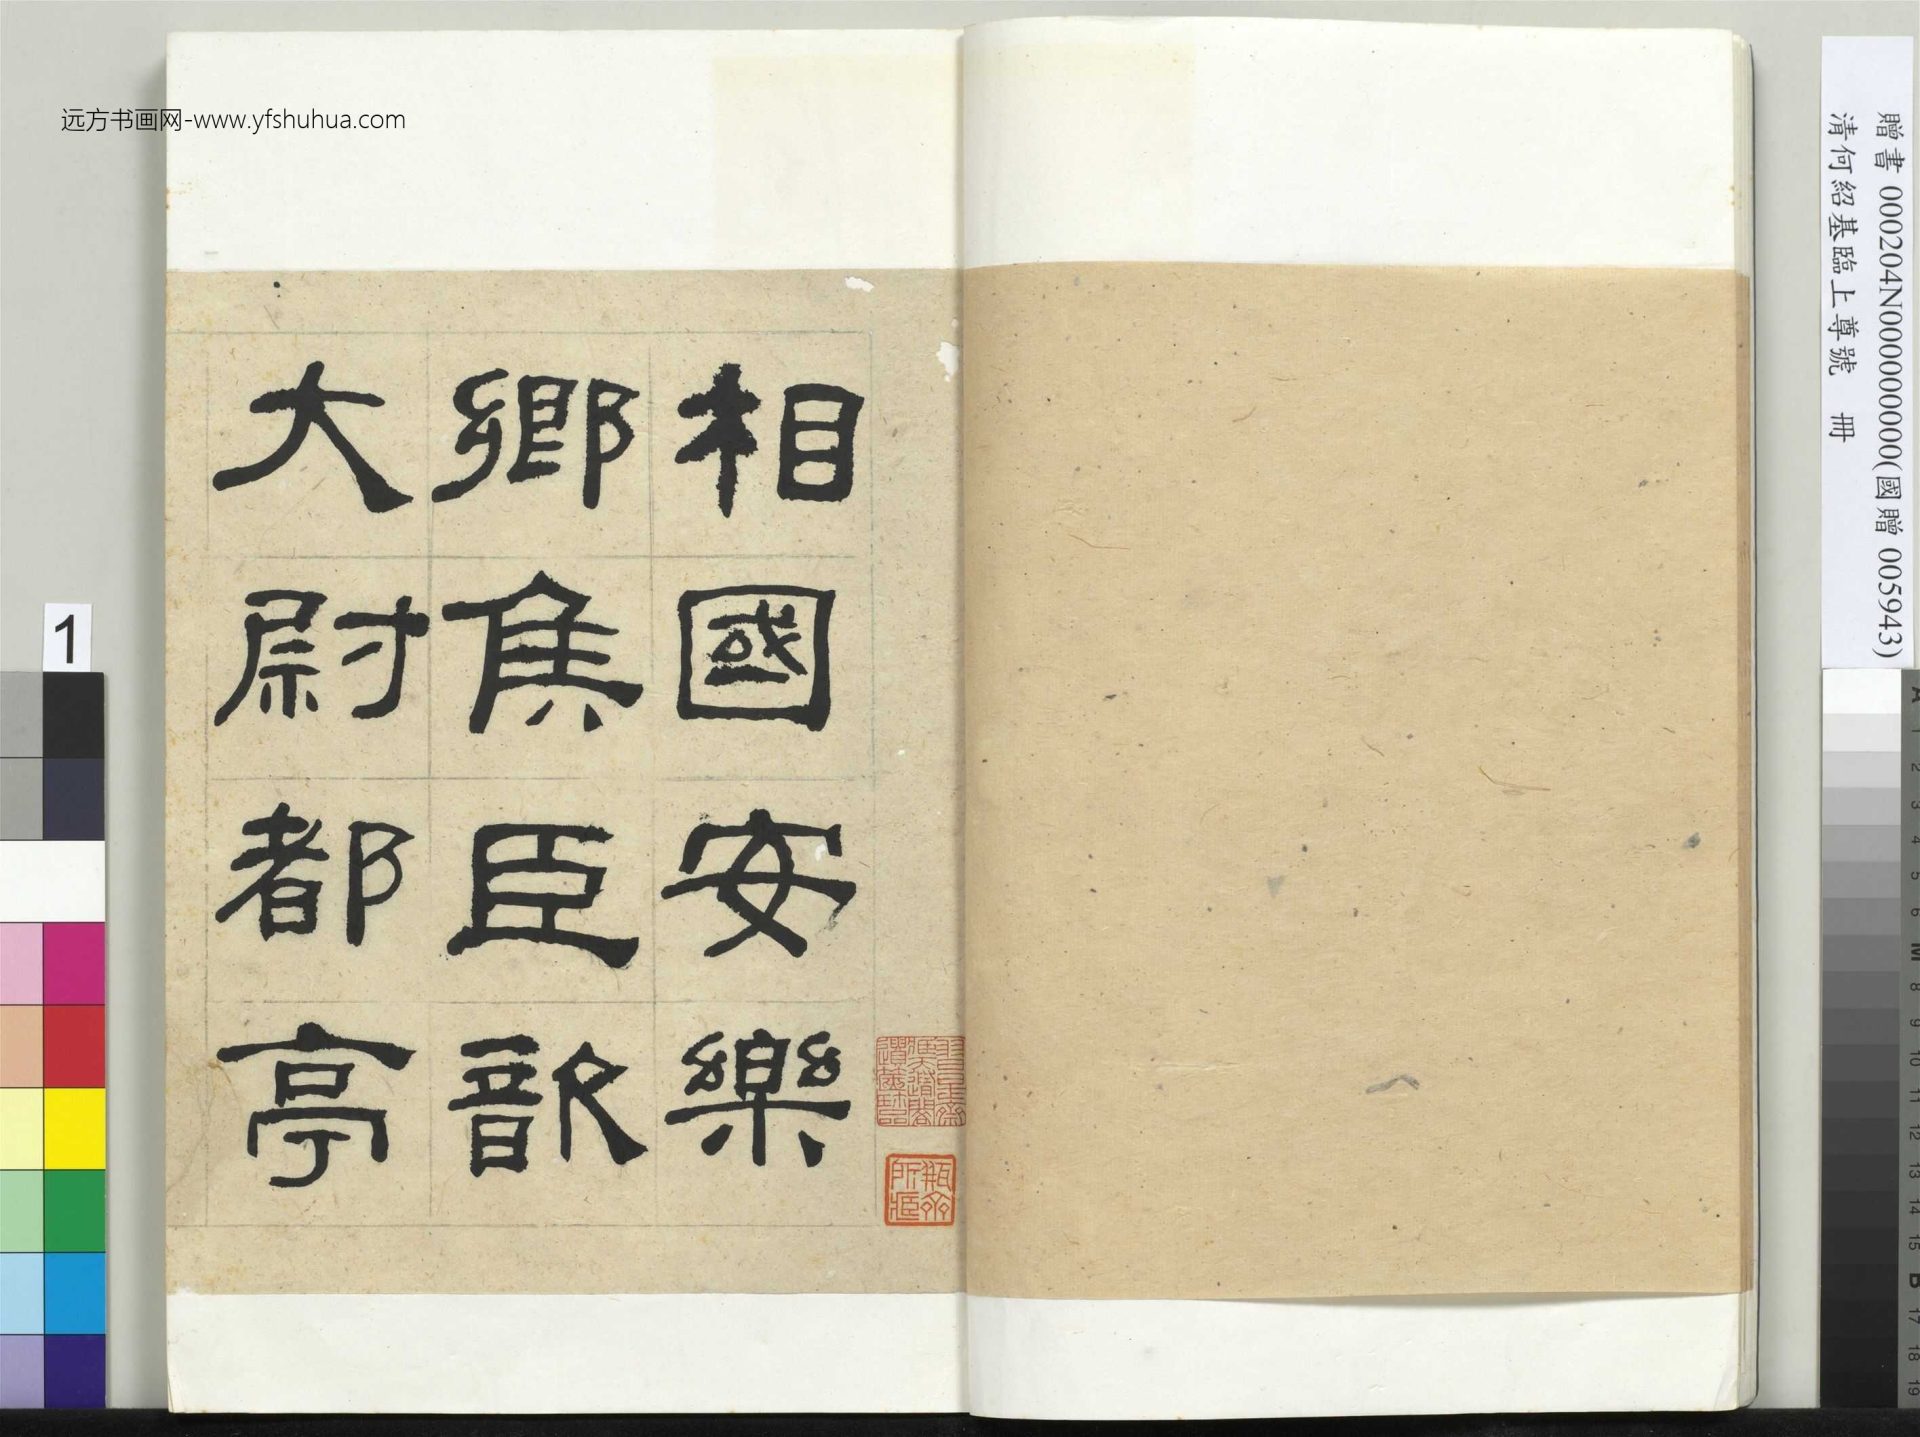 远方书画网-www.yfshuhua.com
贈書 000204N000000000(國贈 005943)
清何紹基臨上尊號 冊
相國安樂
鄉侯臣歆
大尉都亭
瓶齋
所藏
1
A 1 2 3 4 5 6 M 8 9 10 11 12 13 14 15 B 17 18 19